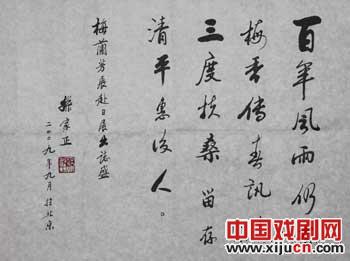 百年風雨仍
梅香傳春訊
三度扶桑留存
清平惠後人。
梅蘭芳展赴日展出誌盛
孫家正
二〇〇九年九月於北京
中国戏剧网
www.xijucn.com